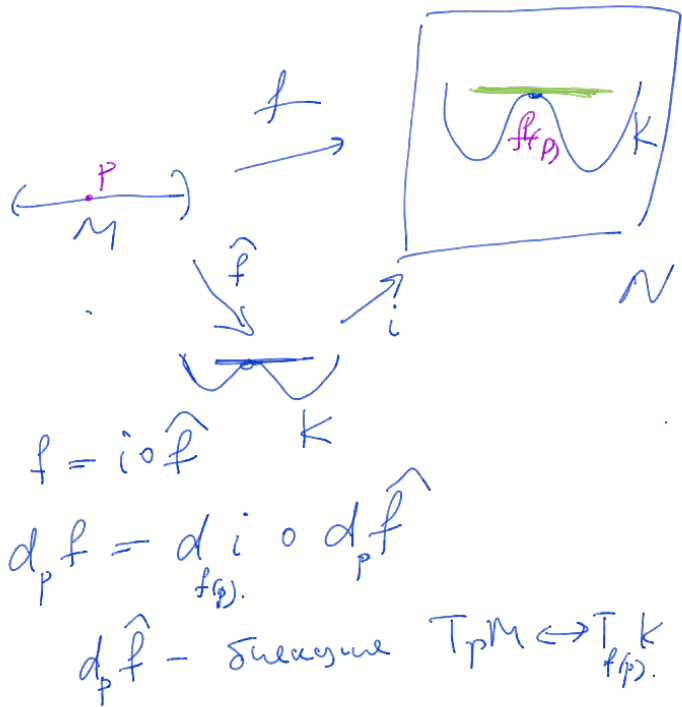 f
P
f(p)
K
M
f̂
i
N
K
f = i ∘ f̂
d_p f = d_{f(p)} i ∘ d_p f̂
d_p f̂ – биекция T_pM ↔ T_{f(p)}K